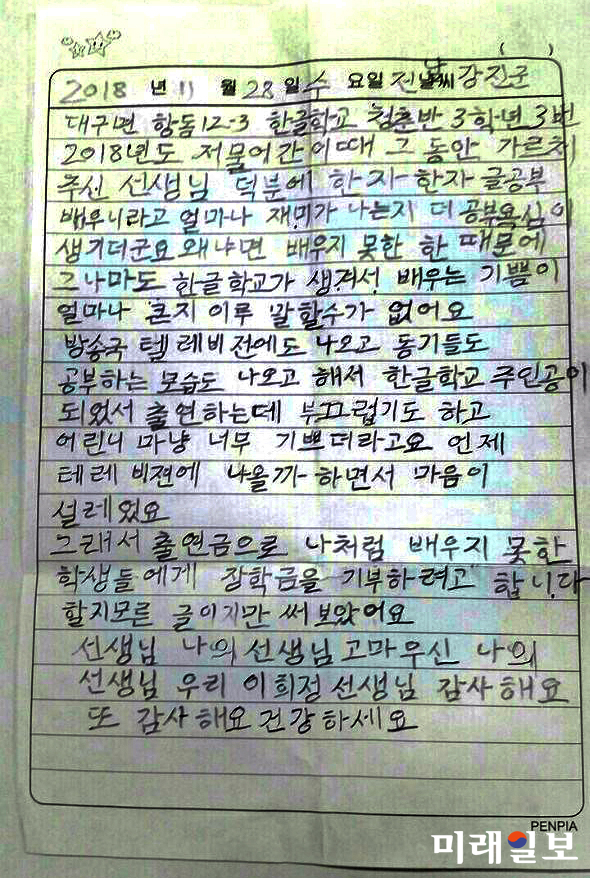 ( )
2018 년 11 월 28 일 수 요일 전남 강진군
대구면 항동12-3 한글학교 청춘반 3학년 3번
2018년도 저물어간 이때 그 동안 가르쳐
주신 선생님 덕분에 한자 한자 글공부
배우니라고 얼마나 재미가 나는지 더 공부욕심이
생기더군요 왜냐면 배우지 못한 한 때문에
그나마도 한글학교가 생겨서 배우는 기쁨이
얼마나 큰지 이루 말할수가 없어요
방송국 텔레비전에도 나오고 동기들도
공부하는 모습도 나오고 해서 한글학교 주인공이
되었서 출연하는데 부끄럽기도 하고
어린니 마냥 너무 기쁘더라고요 언제
테레비젼에 나올까 하면서 마음이
설레있요
그래서 출연금으로 나처럼 배우지 못한
학생들에게 장학금을 기부하려고 합니다
할지모른 글이지만 써보았어요
선생님 나의 선생님 고마우신 나의
선생님 우리 이희정 선생님 감사해요
또 감사해요 건강하세요
PENPIA
미래일보